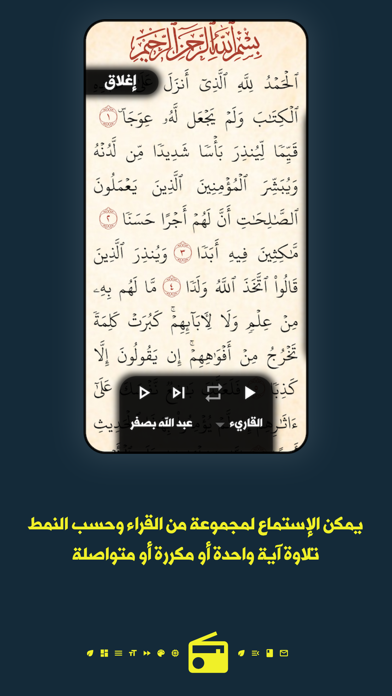 بِسْمِ ٱللَّهِ ٱلرَّحْمَٰنِ ٱلرَّحِيمِ
إغلاق
ٱلْحَمْدُ لِلَّهِ ٱلَّذِىٓ أَنزَلَ
ٱلْكِتَٰبَ وَلَمْ يَجْعَل لَّهُۥ عِوَجَا ۜ ١
قَيِّمًا لِّيُنذِرَ بَأْسًا شَدِيدًا مِّن لَّدُنْهُ
وَيُبَشِّرَ ٱلْمُؤْمِنِينَ ٱلَّذِينَ يَعْمَلُونَ
ٱلصَّٰلِحَٰتِ أَنَّ لَهُمْ أَجْرًا حَسَنًا ٢
مَّٰكِثِينَ فِيهِ أَبَدًا ٣ وَيُنذِرَ ٱلَّذِينَ
قَالُوا۟ ٱتَّخَذَ ٱللَّهُ وَلَدًا ٤ مَّا لَهُم بِهِۦ
مِنْ عِلْمٍ وَلَا لِـَٔابَآئِهِمْ ۚ كَبُرَتْ كَلِمَةً
تَخْرُجُ مِنْ أَفْوَٰهِهِمْ ۚ إِن يَقُولُونَ إِلَّا
كَذِبًا
القاريء عبد الله بصفر
يمكن الإستماع لمجموعة من القراء وحسب النمط
تلاوة آية واحدة أو مكررة أو متواصلة